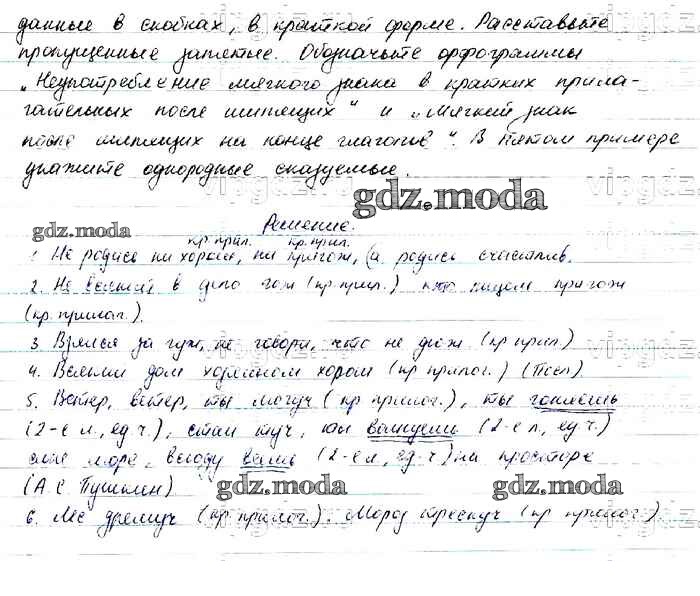 данные в скобках, в краткой форме. Расставьте
пропущенные запятые. Обозначьте орфограммы
„Неупотребление мягкого знака в кратких прила-
гательных после шипящих" и „Мягкий знак
после шипящих на конце глаголов". В пятом примере
укажите однородные сказуемые.
gdz.moda
gdz.moda
Решение.
кр. прил. кр. прил.
1. Не родись ни хорош, ни пригож, (а родись счастлив.
2. Не всякий в дело гож (кр прил.) кто лицом пригож
(кр. прилаг.).
3. Взялся за гуж, не говори, что не дюж (кр прил)
4. Всякий дом хозяином хорош (кр прилаг.) (Посл)
5. Ветер, ветер, ты могуч (кр прилаг.), ты гоняешь
(2-е л., ед ч.), стаи туч, ты волнуешь (2-е л, ед. ч.)
сине море, всюду веешь (2-е л, ед. ч) на просторе
(А С Пушкин)
gdz.moda gdz.moda
6. Лес дремуч (кр прилаг.). Мороз трескуч (кр прилаг.)